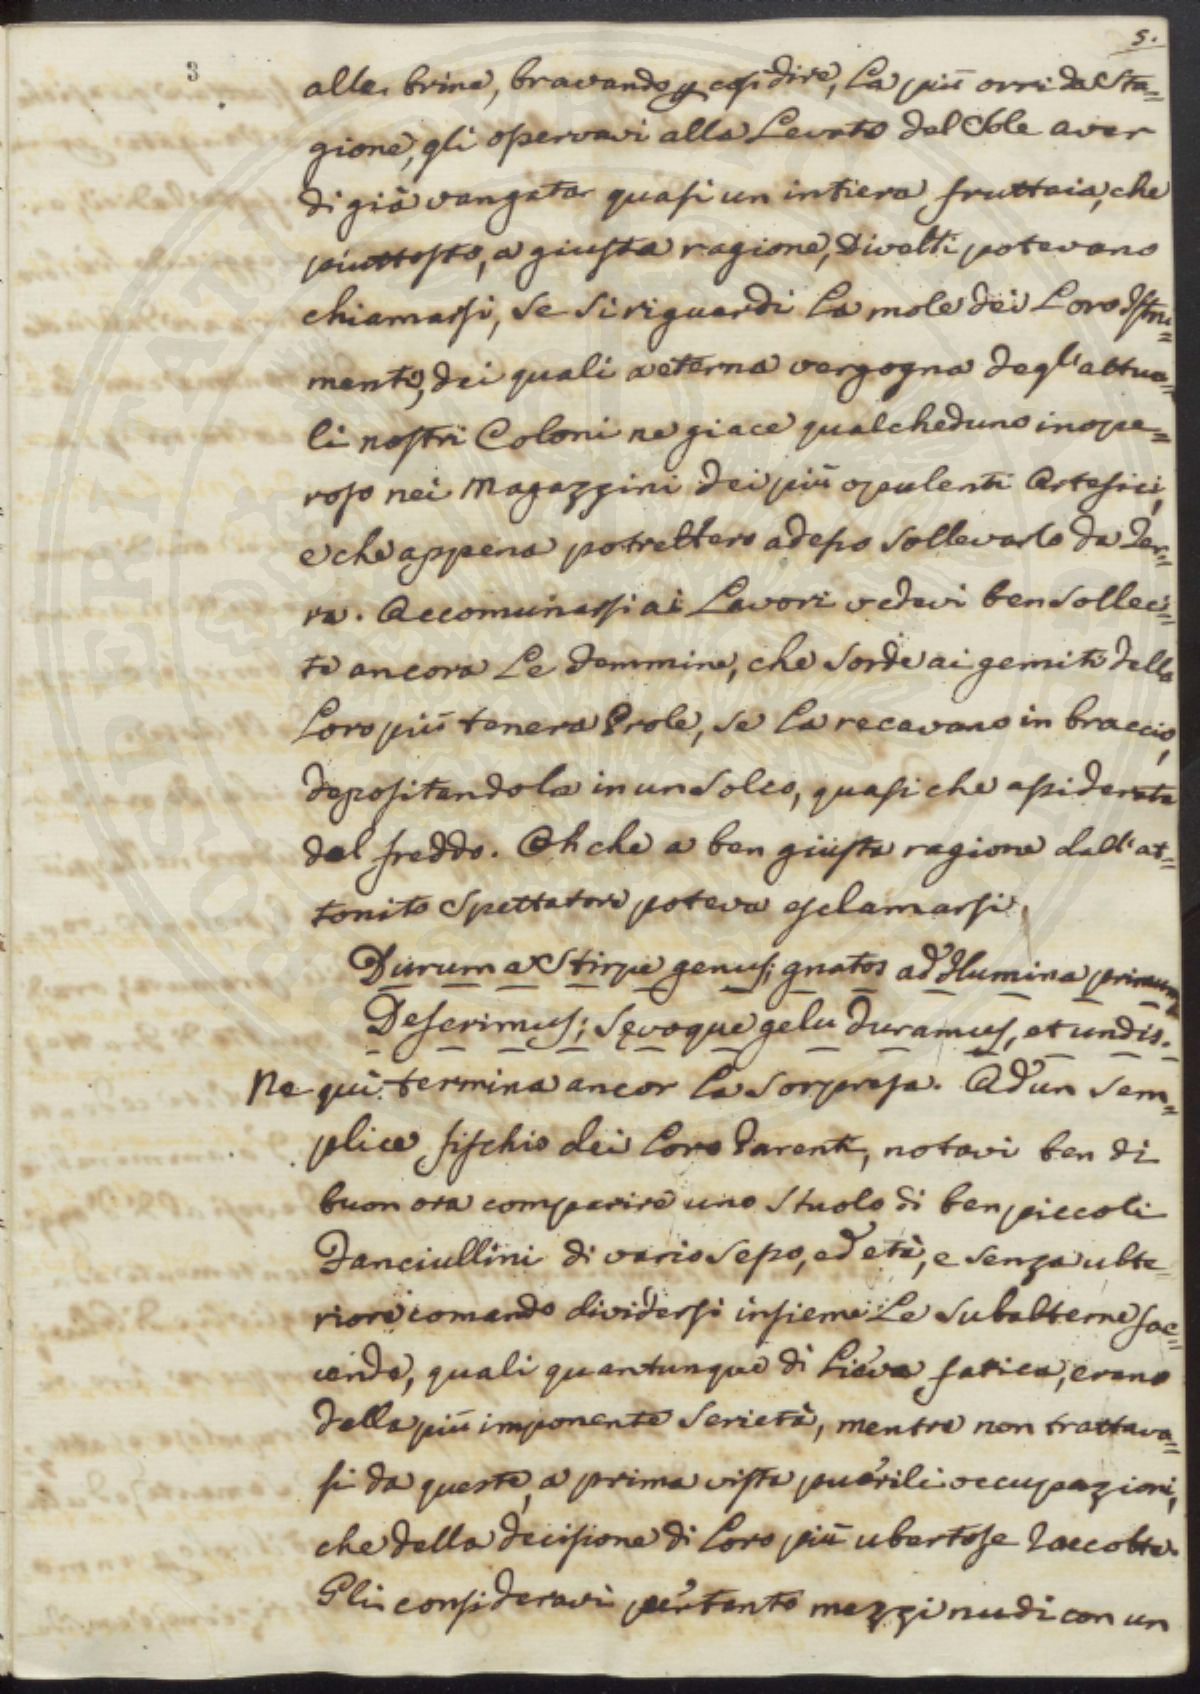 5.
3
alle brine, bravando p così dire, la più orrida Sta=
gione, gli osservavi alla Levata del Sole aver
di già vangata quasi un intiera fruttaia, che
piuttosto, a giusta ragione, Divelti potevano
chiamarsi, se si riguardi la mole dei Loro Istru=
menti, dei quali a eterna vergogna degl'attua=
li nostri Coloni ne giace qualcheduno inope=
roso nei Magazzini dei più opulenti Artefici,
e che appena potrebbero adesso sollevarlo da Ter=
ra. Accomunarsi ai Lavori vedevi ben solleci=
te ancora Le Femmine, che sorde ai gemiti della
Loro più tenera Prole, se la recavano in braccio,
depositandola in un Solco, quasi che assiderata
dal freddo. Oh che a ben giusta ragione dall'at=
tonito Spettatore poteva esclamarsi
Durum a Stirpe genus; gnatos ad Flumina primum
Deferimus; Sęvoque gelu duramus, et undis.
Ne quì termina ancor la Sorpresa. Ad un Sem=
plice fischio dei loro Parenti, notavi ben di
buon ora comparire uno stuolo di ben piccoli
Fanciullini di vario sesso, ed età, e senza ulte=
riore comando dividersi insieme Le subalterne fac=
cende, quali quantunque di Lieve fatica, erano
della più imponente Serietà, mentre non trattava=
si da queste, a prima vista puerili occupazioni,
che della decisione di Loro più ubertose Raccolte.
Gli consideravi pertanto mezzi nudi con un